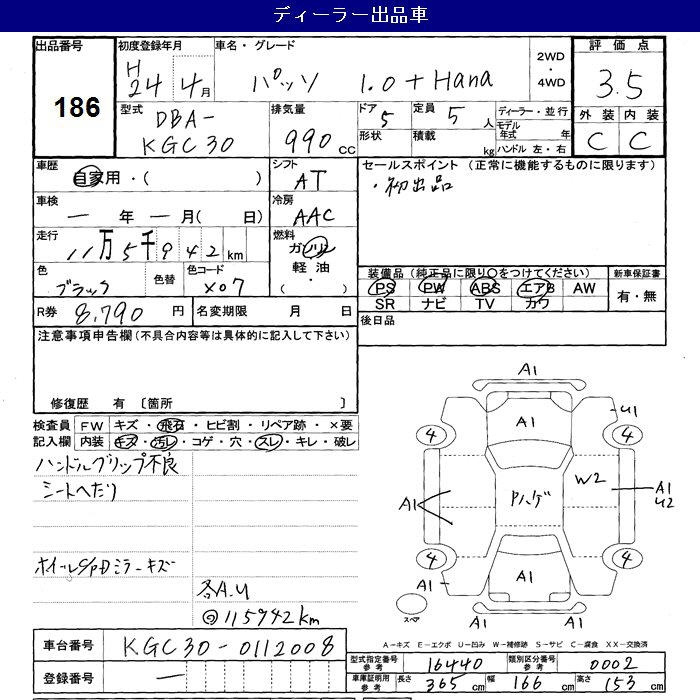 ディーラー出品車
出品番号 186
初度登録年月 H24年4月
車名・グレード パッソ 1.0+Hana
2WD・4WD
評価点 3.5
型式 DBA-KGC30
排気量 990cc
ドア 5 形状
定員 5人 積載 kg
ディーラー・並行
モデル年式 年
ハンドル 左・右
外装 内装
C C
車歴 自家用・( )
シフト AT
セールスポイント (正常に機能するものに限ります)
・初出品
車検 ー年ー月( 日)
冷房 AAC
走行 11万5千942km
燃料 ガソリン 軽油 ・( )
色 ブラック 色替
色コード X07
装備品(純正品に限り○をつけてください)
新車保証書
PS PW ABS エアB AW
有・無
SR ナビ TV カワ
R券 8,790円
名変期限 月 日
後日品
注意事項申告欄(不具合内容等は具体的に記入して下さい)
修復歴 有 〔箇所 〕
検査員記入欄
FW キズ・飛石・ヒビ割・リペア跡・×要
内装 キズ・汚レ・コゲ・穴・スレ・キレ・破レ
ハンドルグリップ不良
シートへたり
ホイールC/PDミラーキズ
各A.U
◎115942km
A1
A1
U1
4 4
W2
Pハゲ
A1
A1 U2
4 4
A1
A1
スペア
A-キズ E-エクボ U-凹み W-補修跡 S-サビ C-腐食 XX-交換済
車台番号 KGC30-0112008
登録番号 ー
型式指定番号 参考 16440
類別区分番号 参考 0002
車庫証明用 参考 長さ 365cm 幅 166cm 高さ 153cm